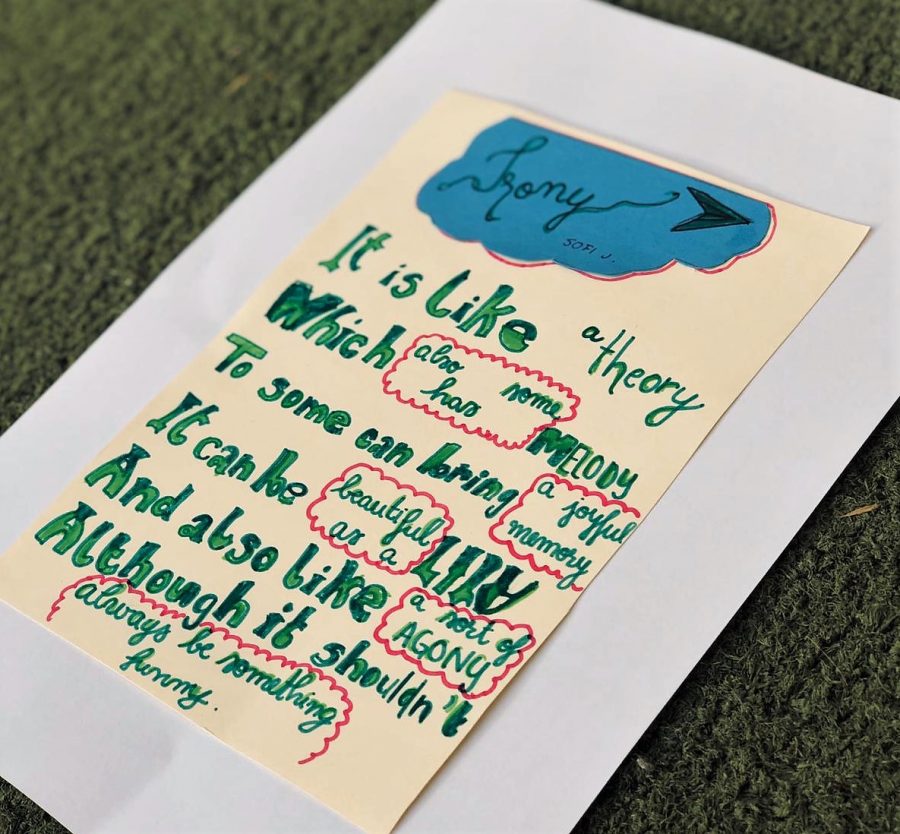 Irony
SOFI J.
It is Like a theory
Which also has some MELODY
To some can bring a joyful memory
It can be beautiful as a LILY
And also like a sort of AGONY
Although it shouldn't
always be something
funny.